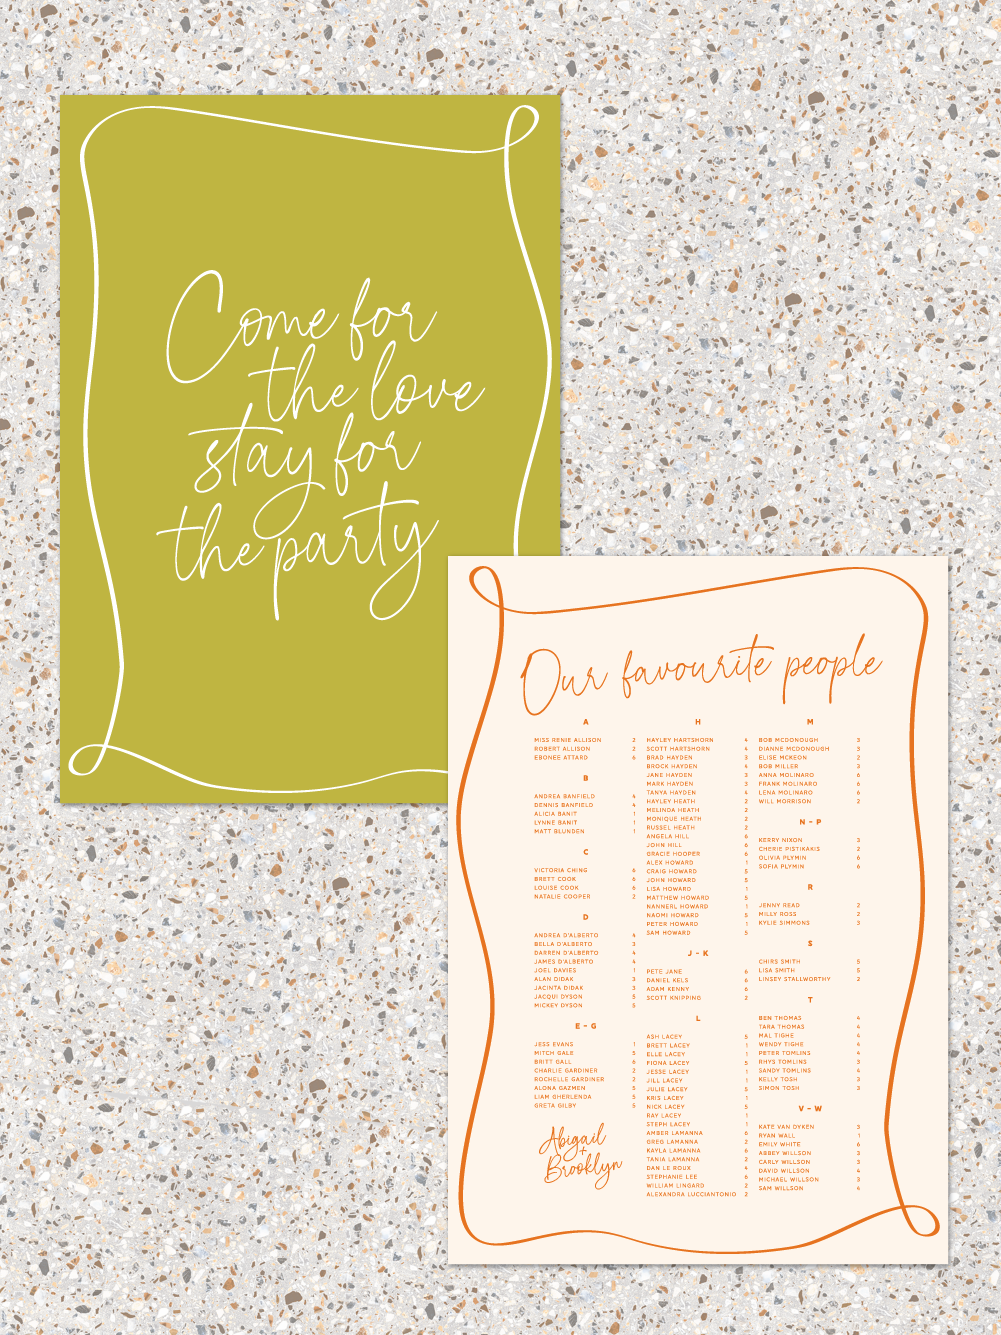 Come for
the love
stay for
the party
Our favourite people
A
MISS RENIE ALLISON 2
ROBERT ALLISON 2
EBONEE ATTARD 6
B
ANDREA BANFIELD 4
DENNIS BANFIELD 4
ALICIA BANIT 1
LYNNE BANIT 1
MATT BLUNDEN 1
C
VICTORIA CHING 6
BRETT COOK 6
LOUISE COOK 6
NATALIE COOPER 2
D
ANDREA D'ALBERTO 4
BELLA D'ALBERTO 3
DARREN D'ALBERTO 4
JAMES D'ALBERTO 4
JOEL DAVIES 1
ALAN DIDAK 3
JACINTA DIDAK 3
JACQUI DYSON 5
MICKEY DYSON 5
E - G
JESS EVANS 1
MITCH GALE 5
BRITT GALL 6
CHARLIE GARDINER 2
ROCHELLE GARDINER 2
ALONA GAZMEN 5
LIAM GHERLENDA 5
GRETA GILBY 5
Abigail
+
Brooklyn
H
HAYLEY HARTSHORN 4
SCOTT HARTSHORN 4
BRAD HAYDEN 3
BROCK HAYDEN 4
JANE HAYDEN 3
MARK HAYDEN 3
TANYA HAYDEN 4
HAYLEY HEATH 2
MELINDA HEATH 2
MONIQUE HEATH 2
RUSSEL HEATH 2
ANGELA HILL 6
JOHN HILL 6
GRACIE HOOPER 6
ALEX HOWARD 1
CRAIG HOWARD 5
JOHN HOWARD 5
LISA HOWARD 1
MATTHEW HOWARD 5
NANNERL HOWARD 1
NAOMI HOWARD 5
PETER HOWARD 1
SAM HOWARD 5
J - K
PETE JANE 6
DANIEL KELS 6
ADAM KENNY 6
SCOTT KNIPPING 2
L
ASH LACEY 5
BRETT LACEY 1
ELLE LACEY 1
FIONA LACEY 5
JESSE LACEY 1
JILL LACEY 1
JULIE LACEY 5
KRIS LACEY 1
NICK LACEY 5
RAY LACEY 1
STEPH LACEY 1
AMBER LAMANNA 6
GREG LAMANNA 2
KAYLA LAMANNA 6
TANIA LAMANNA 2
DAN LE ROUX 4
STEPHANIE LEE 6
WILLIAM LINGARD 2
ALEXANDRA LUCCIANTONIO 2
M
BOB MCDONOUGH 3
DIANNE MCDONOUGH 3
ELISE MCKEON 2
BOB MILLER 3
ANNA MOLINARO 6
FRANK MOLINARO 6
LENA MOLINARO 6
WILL MORRISON 2
N - P
KERRY NIXON 3
CHERIE PISTIKAKIS 2
OLIVIA PLYMIN 6
SOFIA PLYMIN 6
R
JENNY READ 2
MILLY ROSS 2
KYLIE SIMMONS 3
S
CHIRS SMITH 5
LISA SMITH 5
LINSEY STALLWORTHY 2
T
BEN THOMAS 4
TARA THOMAS 4
MAL TIGHE 4
WENDY TIGHE 4
PETER TOMLINS 4
RHYS TOMLINS 3
SANDY TOMLINS 4
KELLY TOSH 3
SIMON TOSH 3
V - W
KATE VAN DYKEN 3
RYAN WALL 1
EMILY WHITE 6
ABBEY WILLSON 3
CARLY WILLSON 3
DAVID WILLSON 4
MICHAEL WILLSON 3
SAM WILLSON 4